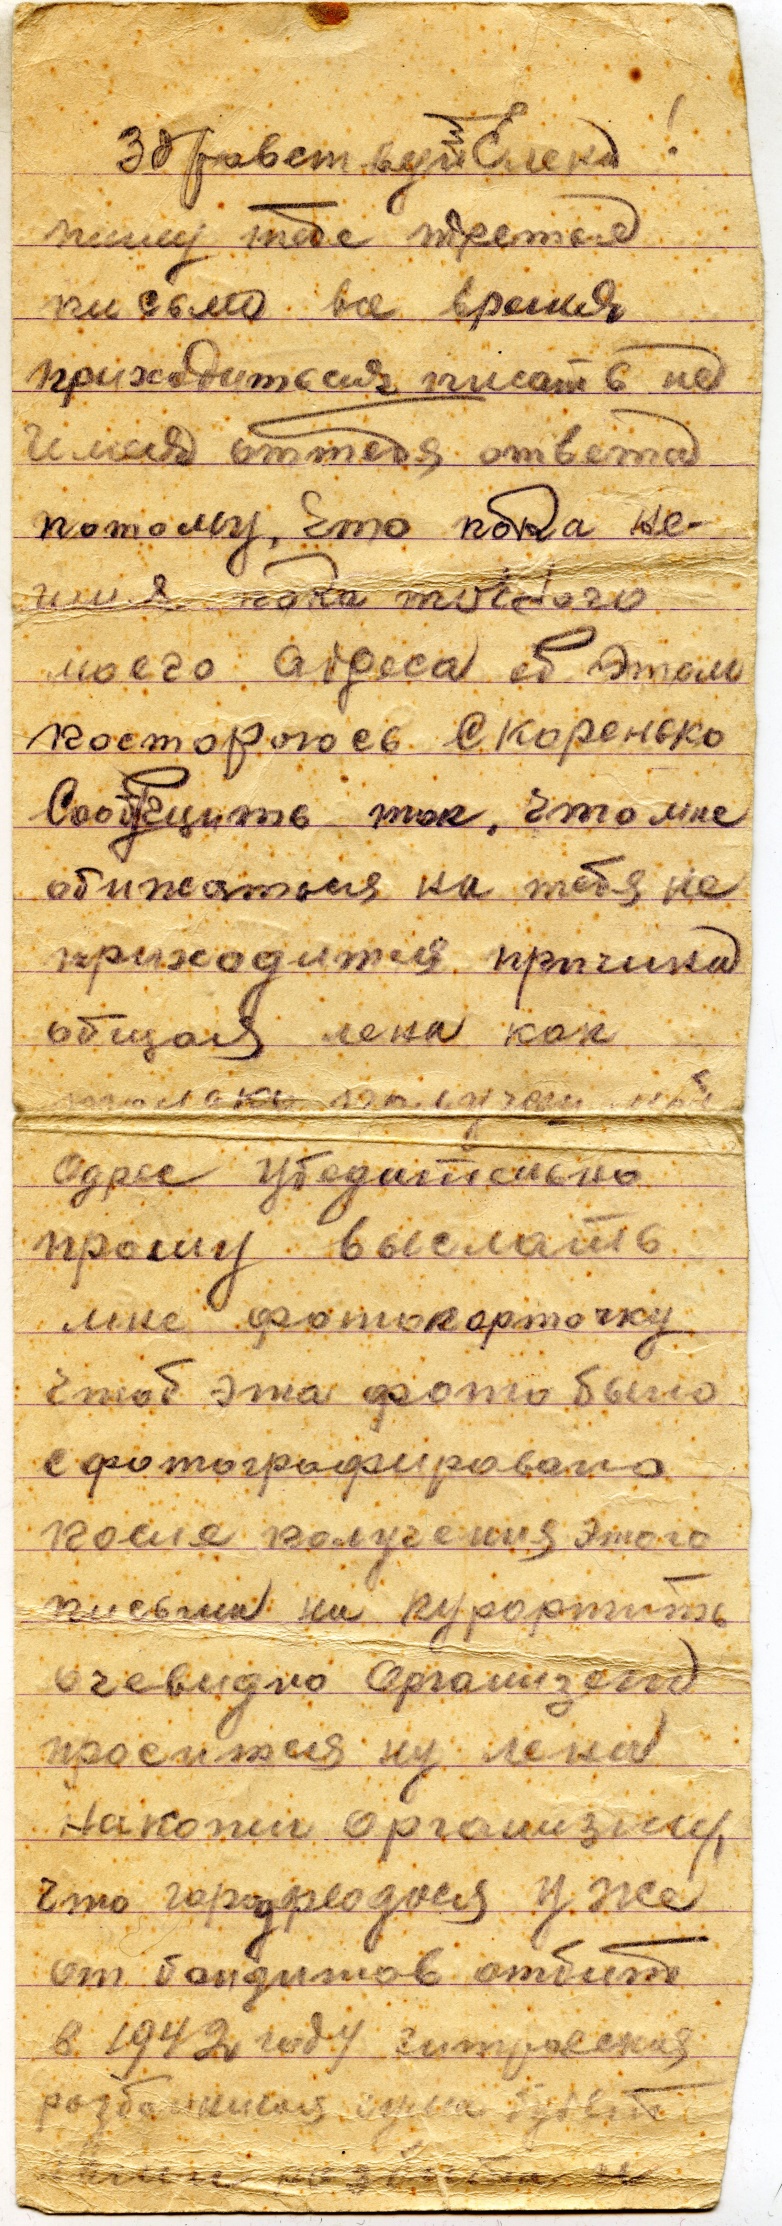 Здравствуй Елена!
пишу тебе третье
письмо все время
приходиться писать не
имея от тебя ответа
потому, что пока не-
имея пока точного
моего адреса об этом
постороюсь Скоренько
Сообщить так, что мне
обижаться на тебя не
приходится причина
общая лена как
только получеш мой
Адрес убедительно
прошу выслать
мне фотокарточку
чтоб эта фото было
сфотографировано
после получения этого
письма на курортить
очевидно Организма
просится ну лена
накажи организму,
что город уже
от бандитов отбит
в 1942 году гитлровская
розбойничая будет